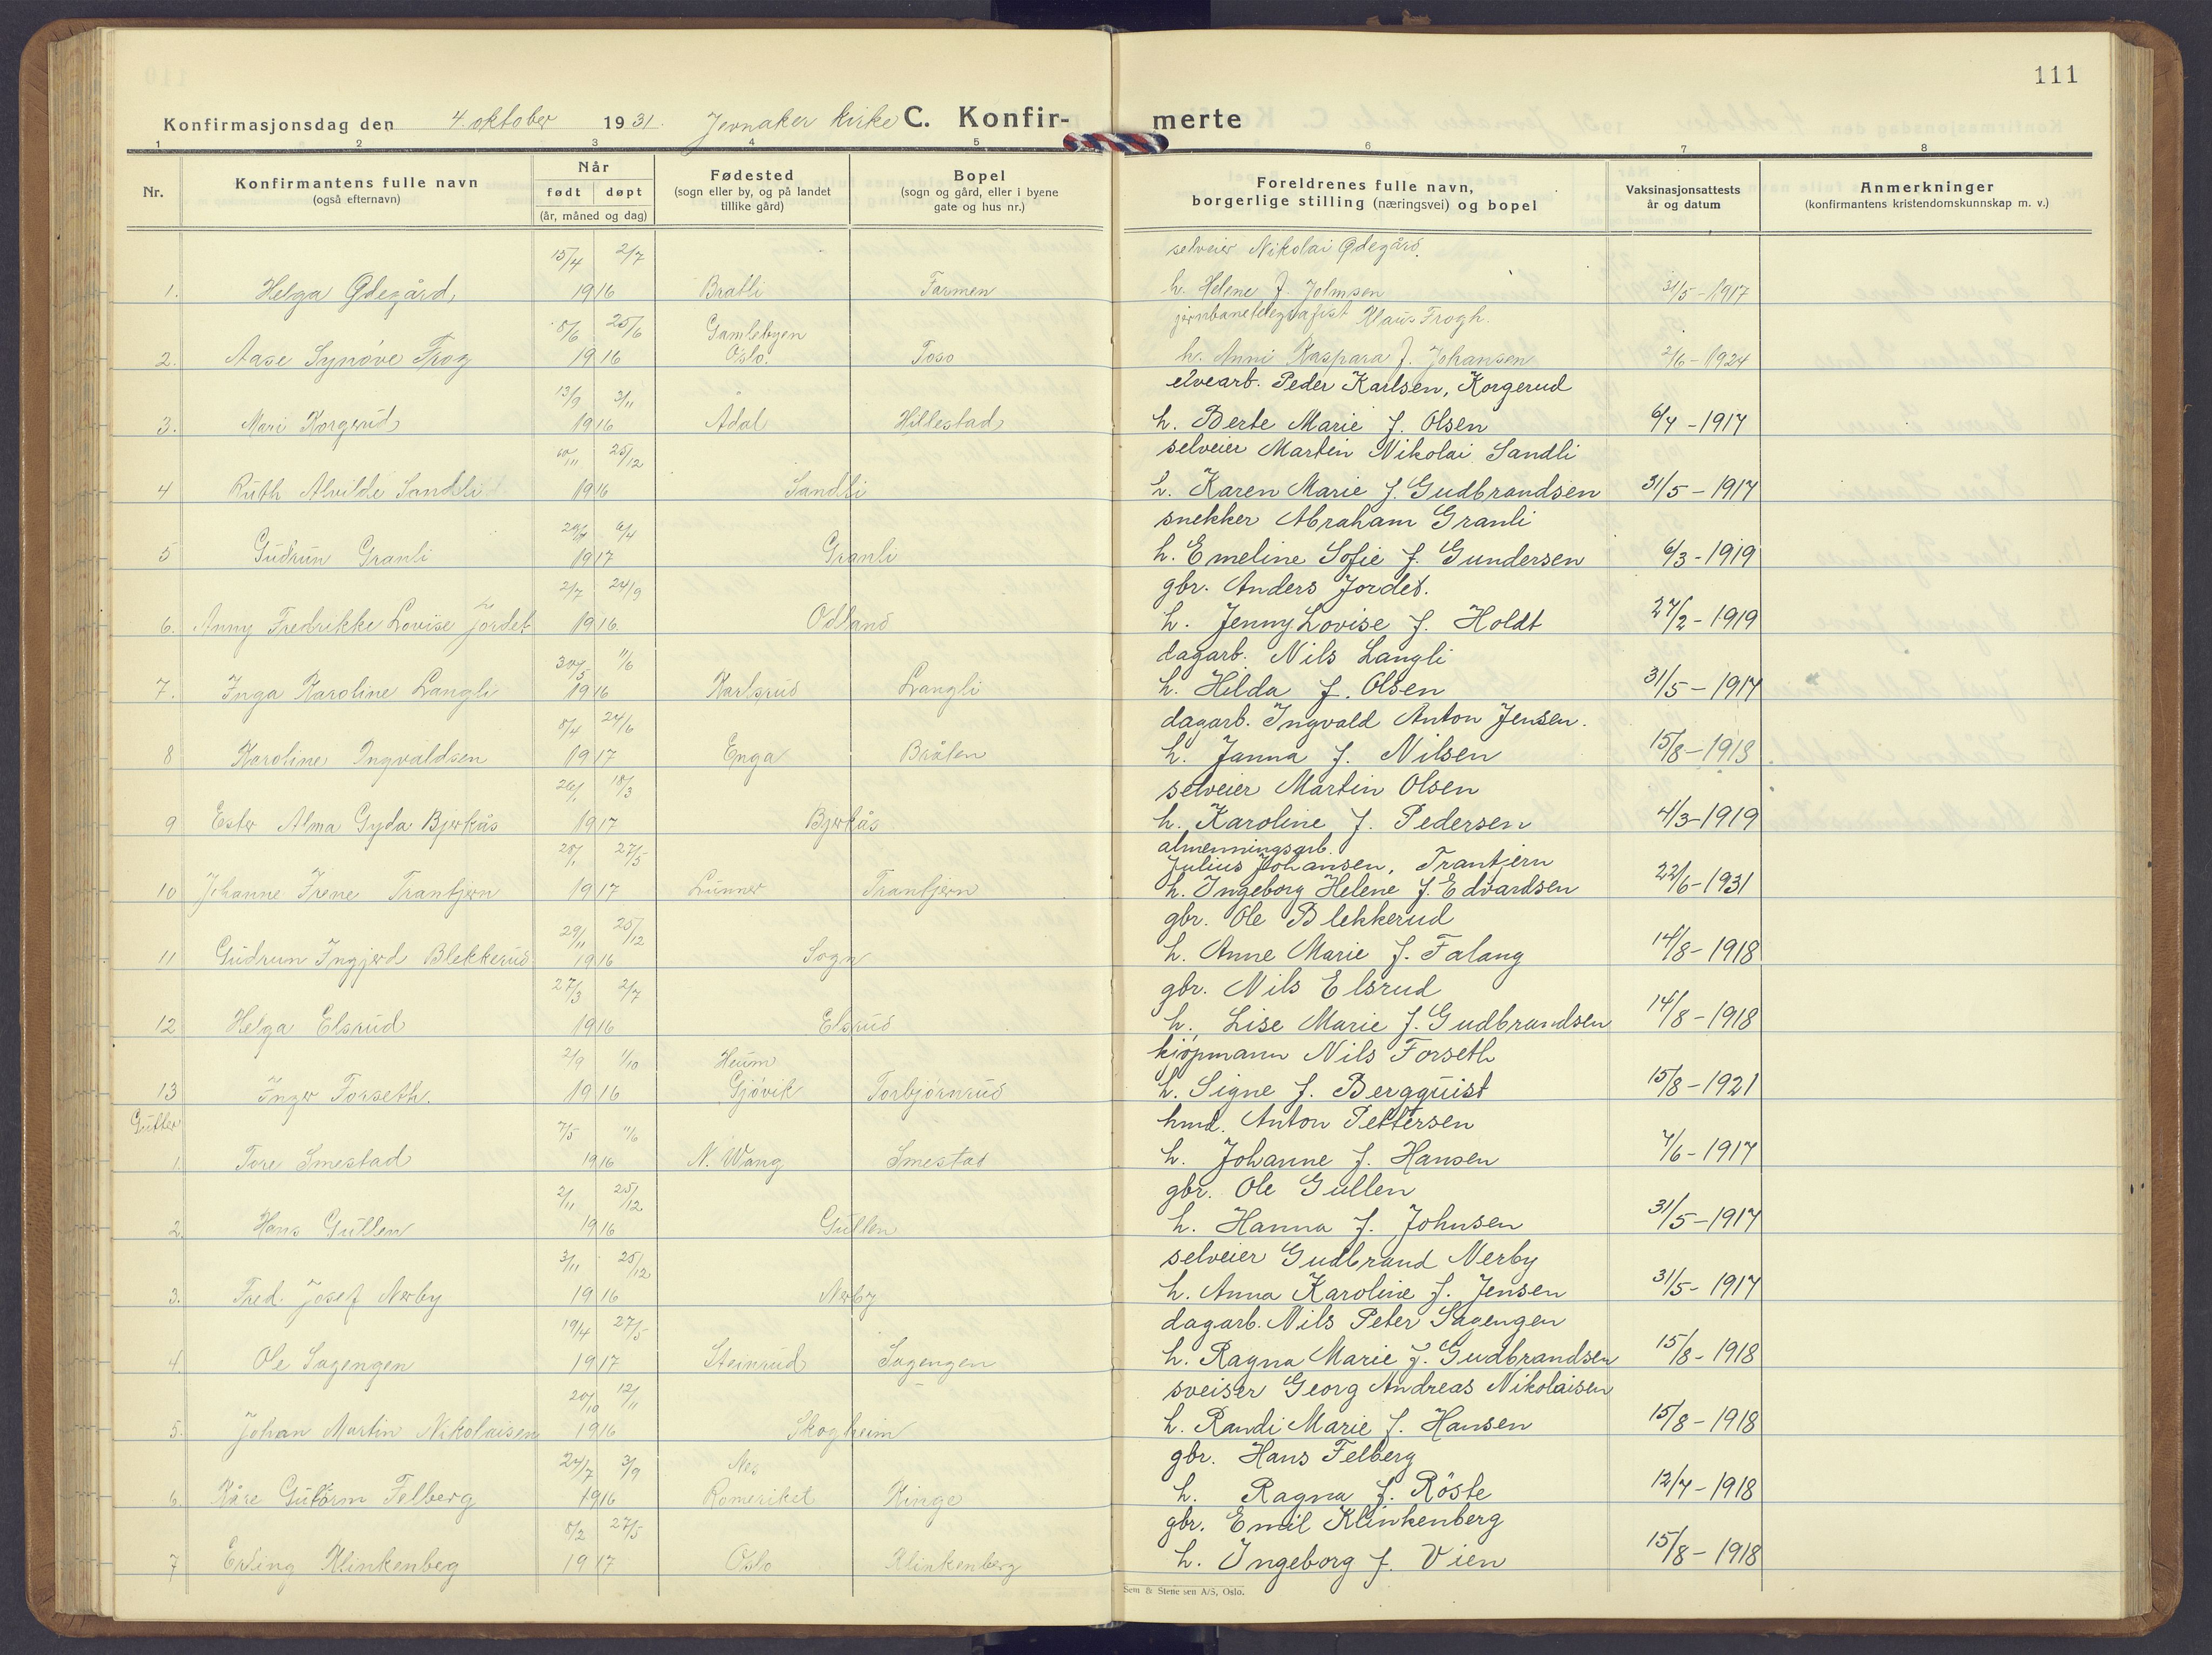 111
Konfirmasjonsdag den 4. oktober 1931. Jevnaker kirke C. Konfir- merte
1 2 3 4 5 6 7 8
Nr. Konfirmantens fulle navn (også efternavn) Når født døpt (år, måned og dag) Fødested (sogn eller by, og på landet tillike gård) Bopel (sogn og gård, eller i byene gate og hus nr.) Foreldrenes fulle navn, borgerlige stilling (næringsvei) og bopel Vaksinasjonsattests år og datum Anmerkninger (konfirmantens kristendomskunnskap m. v.)
15/4 2/7 selveier Nikolai Ødegård.
1. Helga Ødegård, 1916 Bratli Farmen h. Helene f. Johnsen 31/5-1917
8/6 25/6 Gamlebyen jernbanetelegrafist Klaus Frogh.
2. Aase Synöve Frog 1916 Oslo. Toso h. Anni Kaspara f. Johansen 2/6-1924
13/9 3/11 elvearb. Peder Karlsen, Korgerud
3. Mari Korgerud 1916 Ådal Hillestad h. Berte Marie f. Olsen 6/7-1917
10/11 25/12 selveier Martin Nikolai Sandli
4 Ruth Alvilde Sandli 1916 Sandli h. Karen Marie f. Gudbrandsen 31/5-1917
6/4 snekker Abraham Granli
5 Gudrun Granli 1917 Granli h. Emeline Sofie f. Gundersen 6/3-1919
2/7 24/9 gbr. Anders Jordet.
6. Anny Fredrikke Lovise Jordet 1916. Odland h. Jenny Lovise f. Holdt 27/2-1919
30/5 11/6 dagarb. Nils Langli
7. Inga Karoline Langli 1916 Karlsrud Langli h. Hilda f. Olsen 31/5-1917
8/4 24/6 dagarb. Ingvald Anton Jensen.
8 Karoline Ingvaldsen 1917 Enga Bråten h. Janna f. Nilsen 15/8-1918
26/1 18/3 selveier Martin Olsen
9 Ester Alma Gyda Bjerkås 1917 Bjerkås h. Karoline f. Pedersen 4/3-1919
20/1 27/5 almenningsarb. Julius Johansen, Trantjern
10 Johanne Irene Trantjern 1917 Lunner Trantjern h. Ingeborg Helene f. Edvardsen 22/6-1931
29/11 25/12 gbr. Ole Blekkerud
11 Gudrun Ingjerd Blekkerud 1916 Sogn h. Anne Marie f. Falang 14/8-1918
27/3 2/7 gbr. Nils Elsrud
12 Helga Elsrud 1916 Elsrud h. Lise Marie f. Gudbrandsen 14/8-1918
2/9 1/10 Heum kjöpmann Nils Forseth
13 Inger Forseth. 1916 Gjövik Torbjörnrud h. Signe f. Bergquist 15/8-1921
Gutter 7/5 11/6 hmd. Anton Pettersen
1. Tore Smestad 1916 N. Wang Smestad h. Johanne f. Hansen 7/6-1917
2/11 25/12 gbr. Ole Gullen
2. Hans Gullen 1916 Gullen h. Hanna f. Johnsen 31/5-1917
3/11 25/12 selveier Gudbrand Nerby
3. Fred. Josef Nerby 1916 Nerby h. Anna Karoline f. Jensen 31/5-1917
19/4 27/5 dagarb. Nils Peter Sagengen
4. Ole Sagengen 1917 Steinrud Sagengen h. Ragna Marie f. Gudbrandsen 15/8-1918
20/10 12/11 sveiser Georg Andreas Nikolaisen
5. Johan Martin Nikolaisen 1916 Skogheim h. Randi Marie f. Hansen 15/8-1918
24/7 3/9 Nes gbr. Hans Felberg
6. Kåre Guttorm Felberg 1916 Romeriket Kinge h. Ragna f. Röste 12/7-1918
8/2 27/5 gbr. Emil Klinkenberg
7 Erling Klinkenbeg 1917 Oslo Klinkenberg h. Ingeborg f. Vien 15/8-1918
Sem & Stenersen A/S, Oslo.